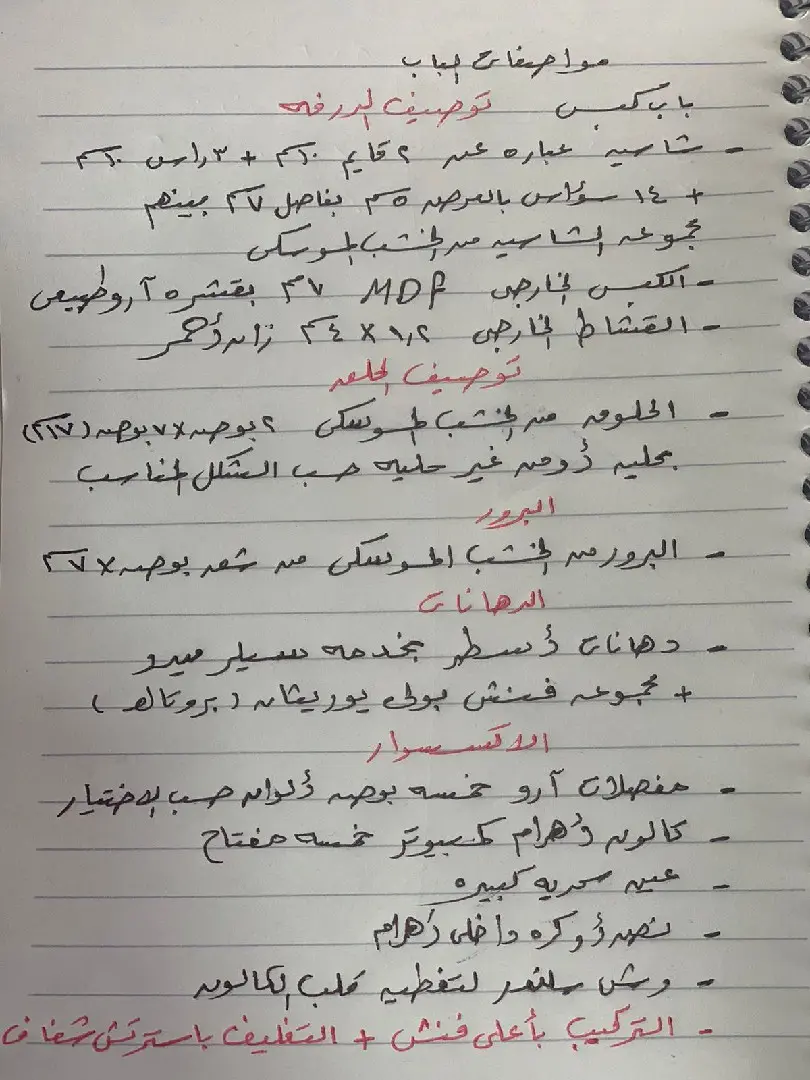 مواصفات الباب
باب كبس توصيف الدرفه
- شاسيه عباره عن ٢ قايم ١٠سم + ٣ راس ١٠سم
+ ١٤ سؤاس بالعرض ٥سم بفاصل ٧سم بينهم
مجموعه الشاسيه من الخشب الموسكى
- الكبس الخارجى MDF ٧م بقشره آرو طبيعى
- القشاط الخارجى ١,٢ X ٤سم زان أحمر
توصيف الحلقه
- الحلوق من الخشب الموسكى ٢ بوصه x ٧ بوصه (١٧سم)
بحليه أو من غير حليه حسب الشكل المناسب
البرور
- البرور من الخشب الموسكى من شقه بوصه x ٧سم
الدهانات
- دهانات أسطر بخدمه سيلر ميدو
+ مجموعه فنش بولى يوريثان (بروتال)
الاكسسوار
- مفصلات آرو خمسه بوصه ألوان حسب الاختيار
- كالون أهرام كمبيوتر خمسه مفتاح
- عين سحريه كبيره
- نصف أوكره داخلى أهرام
- وش سلندر لتغطيه قلب الكالون
- التركيب بأعلى فنش + التغليف باسترتش شفاف